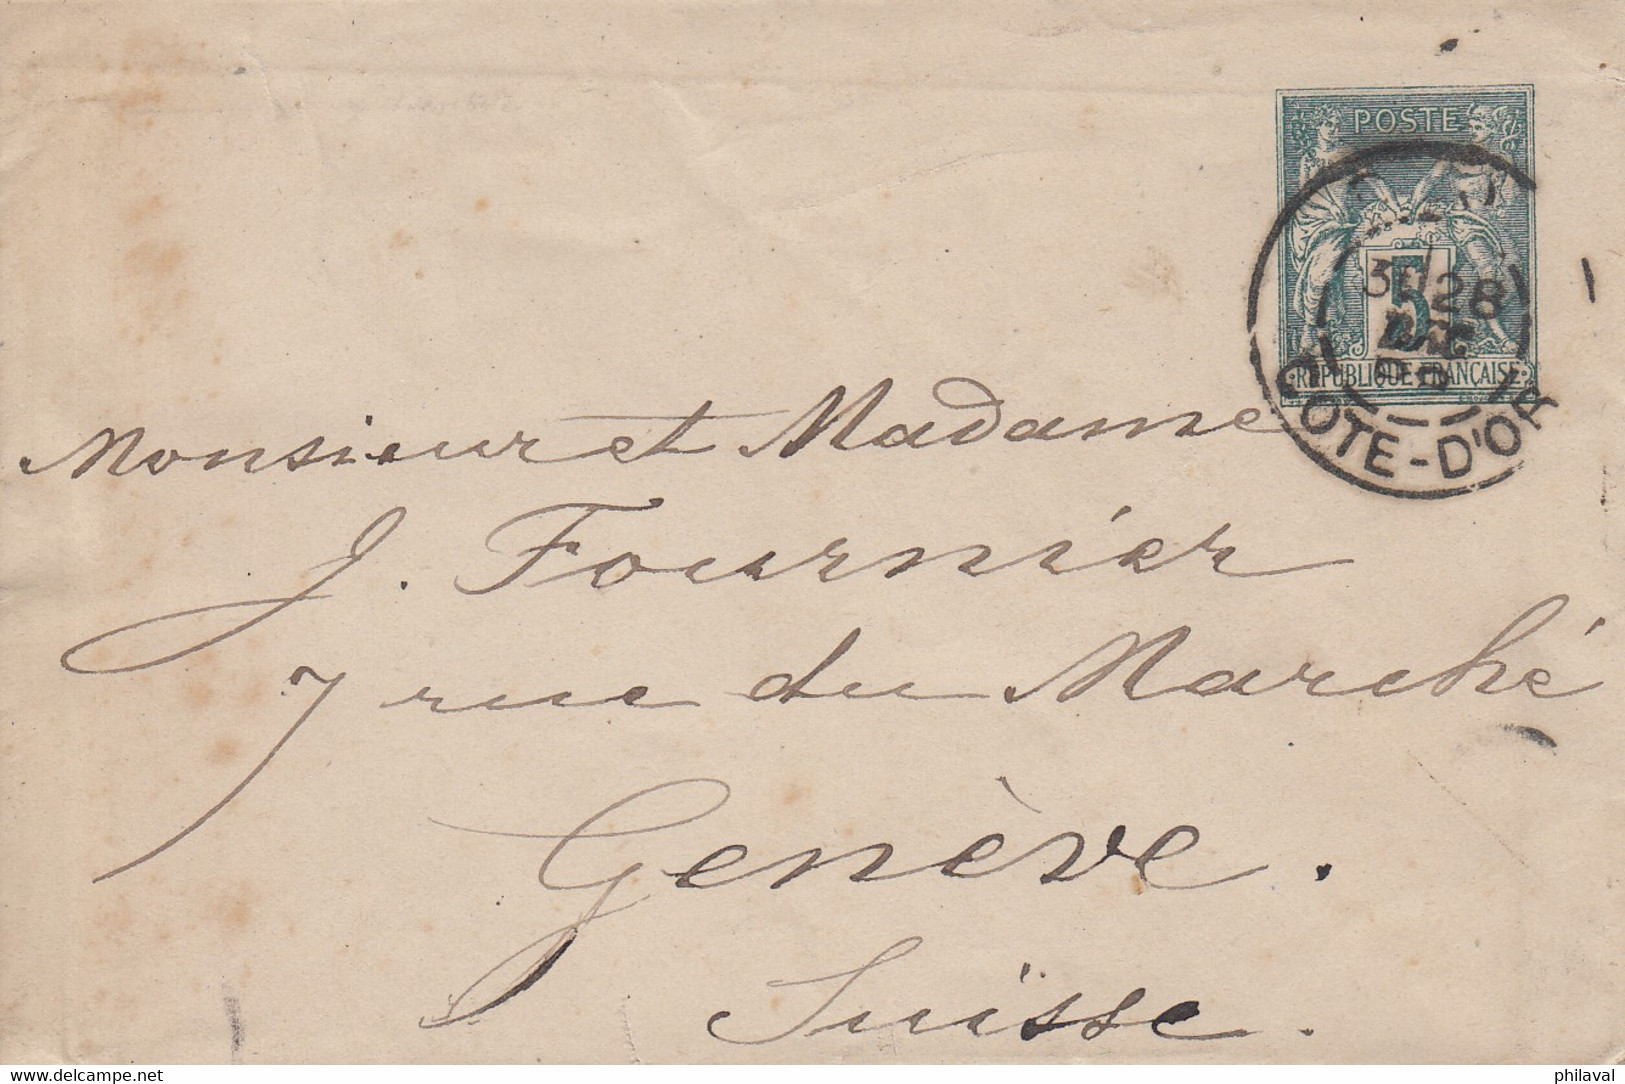 POSTE
5
RÉPUBLIQUE FRANÇAISE
3E 28
COTE-D'OR
Monsieur et Madame
J. Fournier
7 rue du Marché
Genève.
Suisse.
www.delcampe.net
philaval